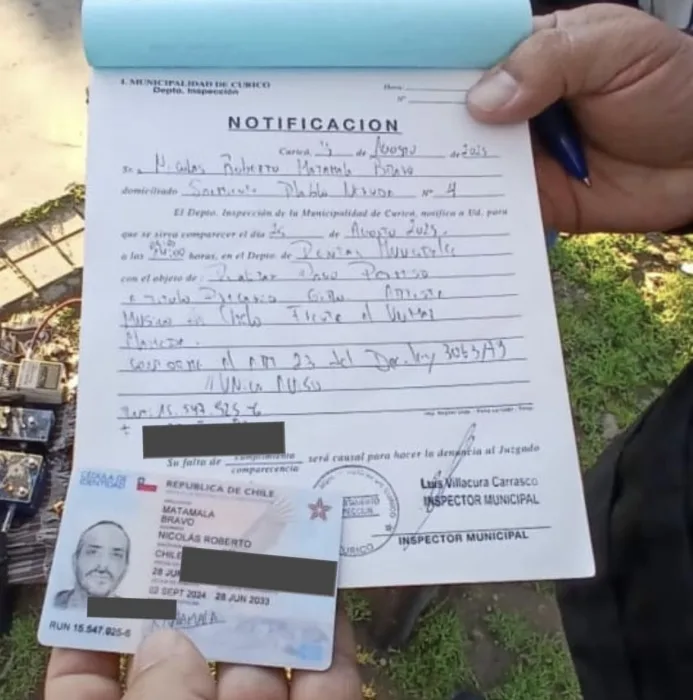 I. MUNICIPALIDAD DE CURICO
Depto. Inspección
Hora
N°
NOTIFICACION
Curicó, de Agosto de 2025
Sr. Nicolas Roberto Matamala Bravo
domiciliado Sarmiento Pablo Neruda N° 4
El Depto. Inspección de la Municipalidad de Curicó, notifica a Ud. para
que se sirva comparecer el día 25 de Agosto 2025,
a las horas, en el Depto. de Rentas Municipales
con el objeto de: Realizar Pago Permiso
a titulo Precario Giro Artista
Musico en Chelo Frente al
Alameda.
conforme al Art 23 del Dec. ley 3063/79
"Unico Aviso
Run: 15.547.925-6
Su falta de cumplimiento
comparecencia
será causal para hacer la denuncia al Juzgado
Luis Villacura Carrasco
INSPECTOR MUNICIPAL
INSPECTOR MUNICIPAL
CURICO
CÉDULA DE
IDENTIDAD
REPUBLICA DE CHILE
MATAMALA
BRAVO
NICOLÁS ROBERTO
CHILE
28 JU
02 SEPT 2024 28 JUN 2033
RUN 15.547.925-6